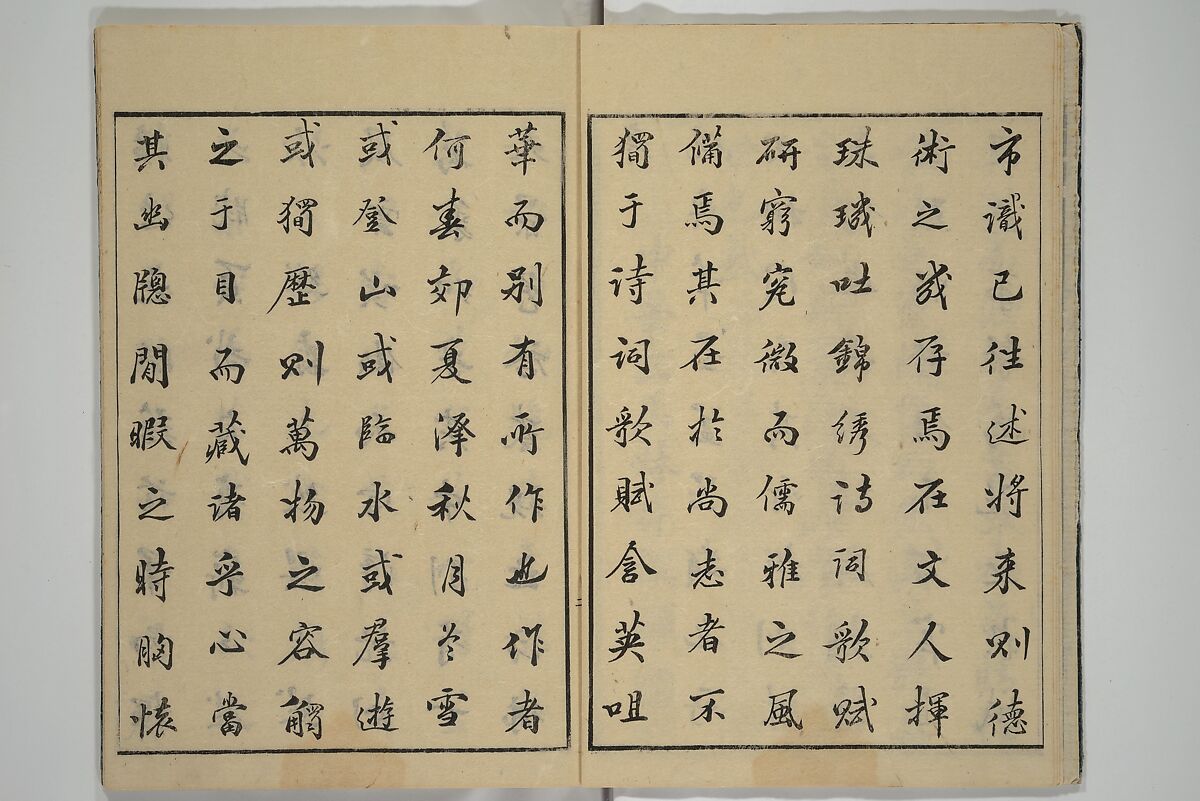 市識已往述将来則德
術之㦲存焉在文人揮
珠璣吐錦繡詩詞歌賦
研窮究微而儒雅之風
備焉其在於尚志者不
獨于詩詞歌賦含英咀
華而别有所作也作者
何春郊夏澤秋月冬雪
或登山或臨水或羣遊
或獨歷則萬物之容觸
之于目而藏诸乎心當
其幽牕閒暇之時胸懷
二